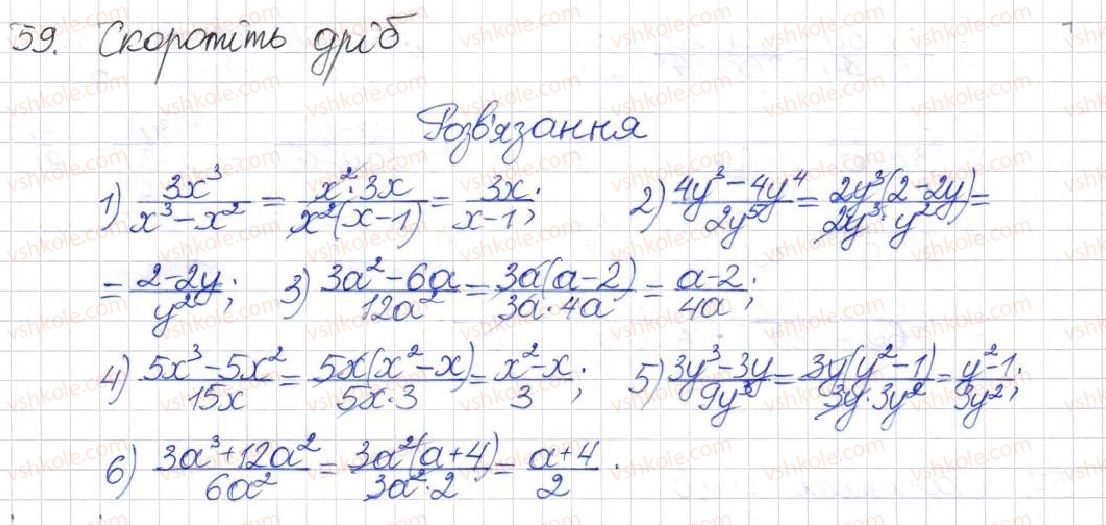 59. Скоротіть дріб
Розв'язання
1) 3x³/(x³-x²) = x²·3x/(x²(x-1)) = 3x/(x-1); 2) (4y³-4y⁴)/(2y⁵) = 2y³(2-2y)/(2y³·y²) =
= (2-2y)/y²; 3) (3a²-6a)/(12a²) = 3a(a-2)/(3a·4a) = (a-2)/(4a);
4) (5x³-5x²)/(15x) = 5x(x²-x)/(5x·3) = (x²-x)/3; 5) (3y³-3y)/(9y³) = 3y(y²-1)/(3y·3y²) = (y²-1)/(3y²);
6) (3a³+12a²)/(6a²) = 3a²(a+4)/(3a²·2) = (a+4)/2.